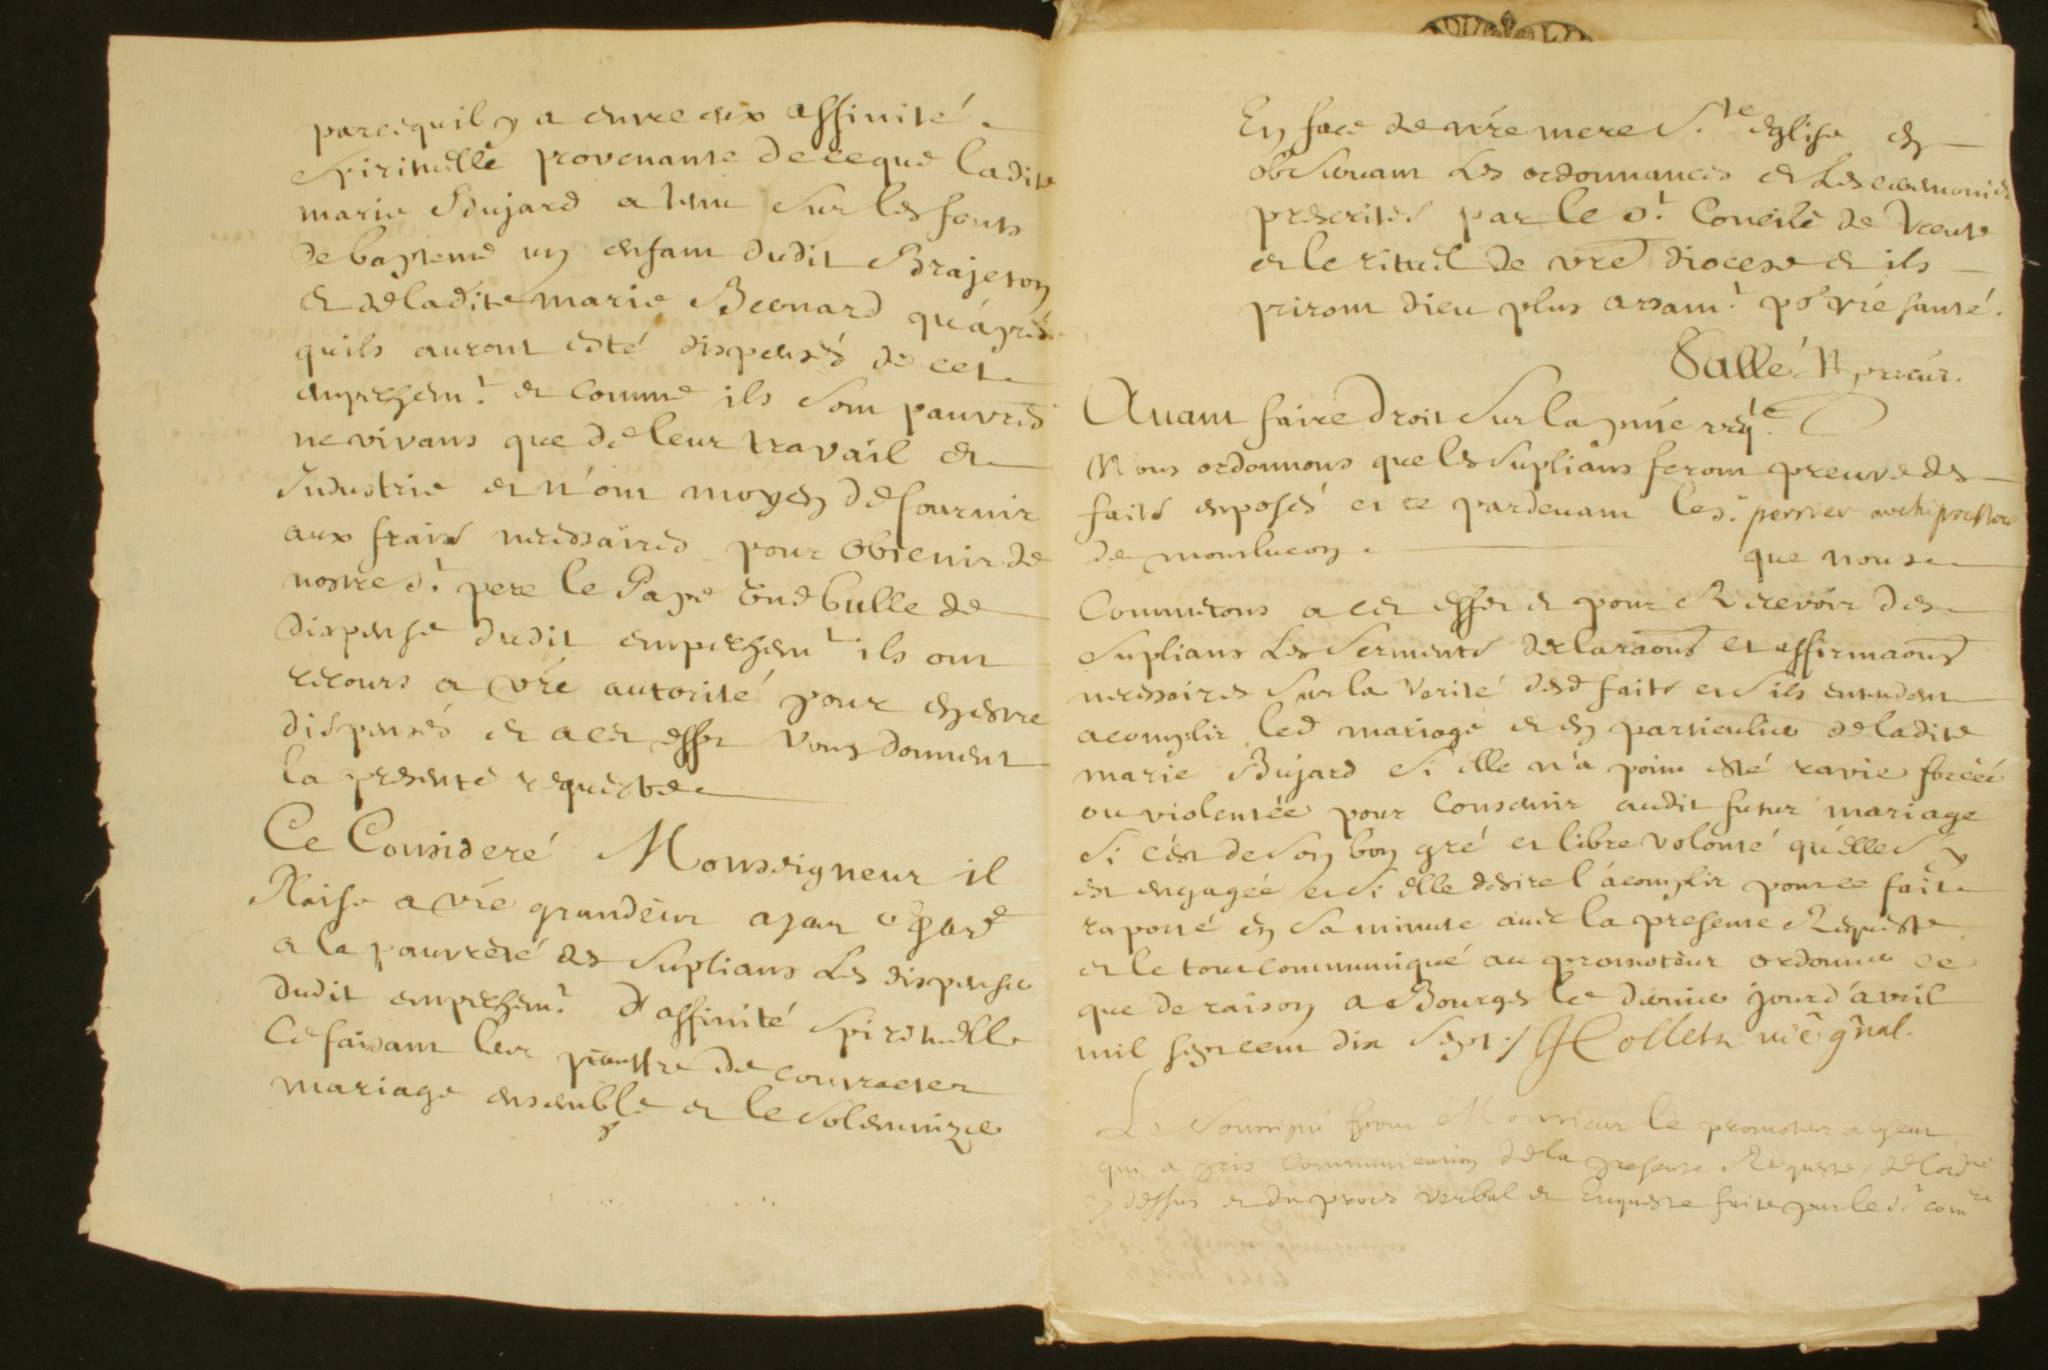 parcequil y a entre eux affinité
Spirituelle provenante de ceque ladite
marie Bujard a tenu sur les fonts
de bapteme un enfant dudit Brajeton
et de ladite marie Besnard qu'après
quils auront esté dispensés de cet
empeschemt. et comme ils sont pauvres
ne vivans que de leur travail et
Industrie et n'ont moyen de fournir
aux frais necessaires pour obtenir de
nostre St. pere le Pape Une bulle de
dispense dudit empeschemt ils ont
recours a vre autorité pour en estre
dispensés et a cet effet Vous donnent
la presente requeste
Ce Consideré Monseigneur il
Plaise a vre grandeur ayant egard
a la pauvreté des suplians les dispenser
dudit empeschemt. d'affinité spirituelle
Ce faisant leur permettre de contracter
mariage ensemble et le solemnizer
En face de nre mere Ste eglise en
observant les ordonnances et les ceremonies
prescrites par le St. Concile de Trente
et le rituel de vre diocese et ils
priront dieu plus arsamt. por vre santé.
Sallé Procur.
Avant faire droit sur la pnte reqte.
Nous ordonnons que les suplians feront preuve des
faits exposés et ce pardevant le sr. perrier archiprestre
de monlucon que nous
Commetons a cet effet et pour Recevoir des
suplians les serments declaraons et affirmaons
necessaires sur la Verité desd faits et sils entendent
acomplir led mariage et en particulier de ladite
marie Bujard si elle n'a point esté ravie forcée
ou violentée pour consentir audit futur mariage
si c'est de son bon gré et libre volonté qu'elle s'y
est engagée et si elle desire l'acomplir pour ce fait
raporté en sa minute avec la presente Requeste
et le tout communiqué au promoteur ordonner ce
que de raison a Bourges le dernier jour d'avril
mil sept cent dix sept ./. Collet vic gnal.
Le Soussigné pour Monsieur le promoteur absent
qui a pris Communication de la presente Requeste, de lordce
cy dessus et du proces verbal et Enqueste faite par le sr. comre